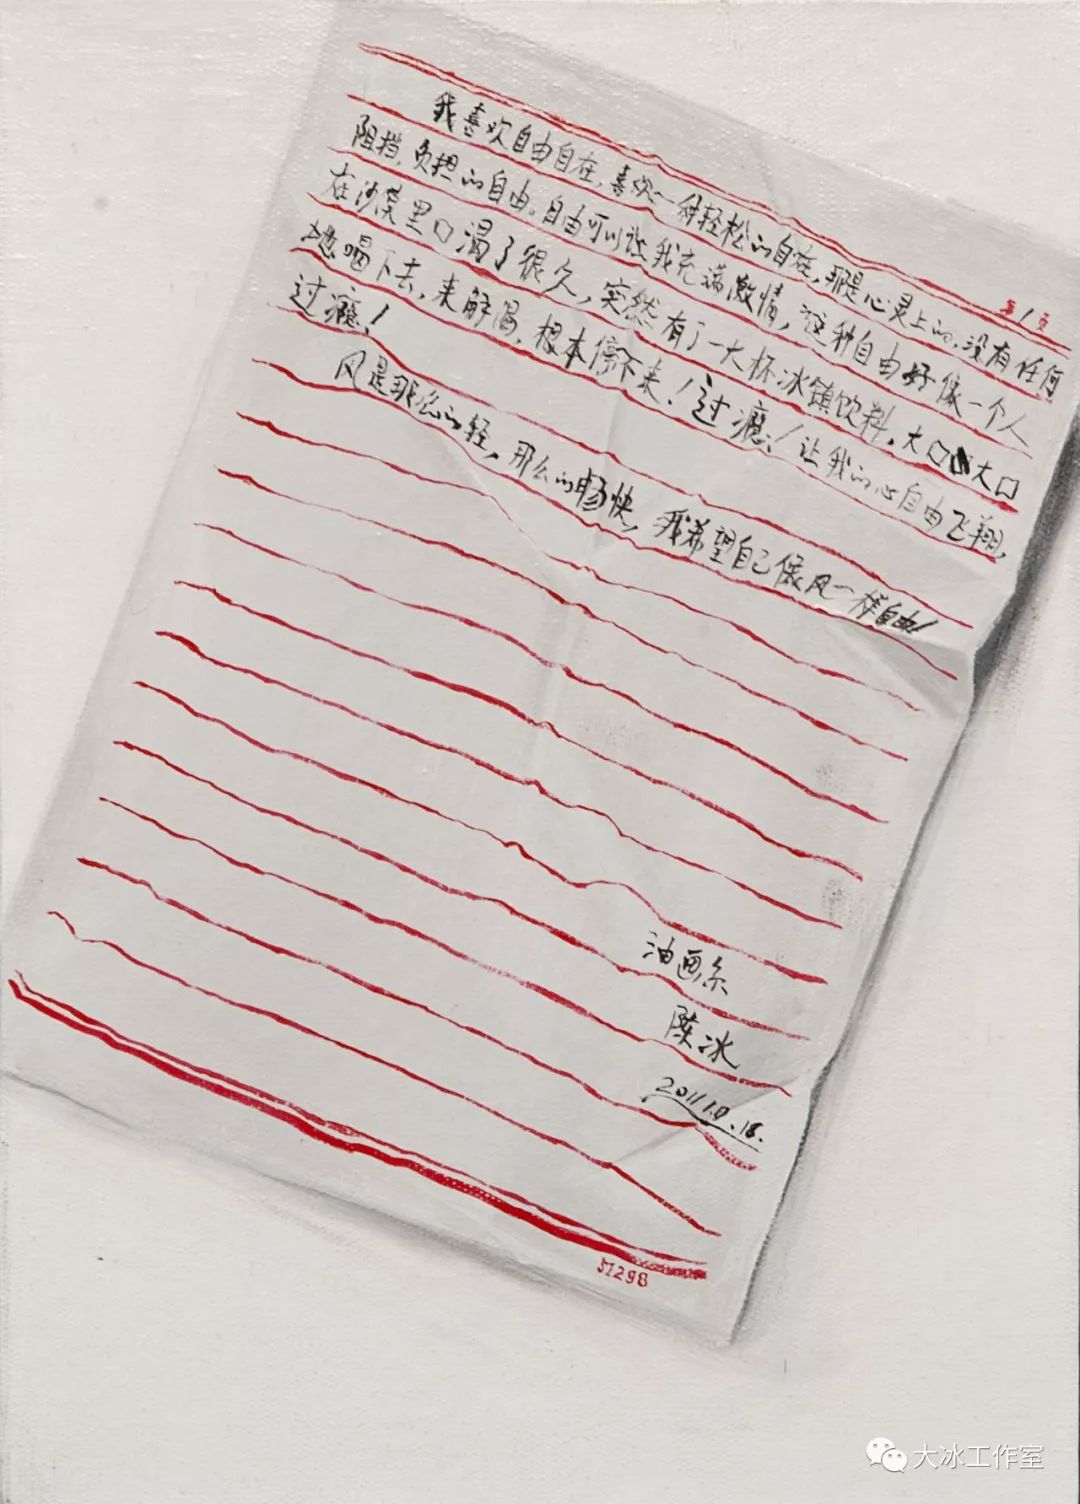 第1页
我喜欢自由自在，喜欢一种轻松的自在，那是心灵上的，没有任何
阻挡，负担的自由。自由可以让我充满激情，这种自由好像一个人
在沙漠里口渴了很久，突然有了一大杯冰镇饮料，大口大口
地喝下去，来解渴，根本停不来！过瘾！让我的心自由飞翔，
过瘾！
风是那么的轻，那么的畅快，我希望自己像风一样自由！
油画系
陈冰
2011.9.18.
51298
大冰工作室